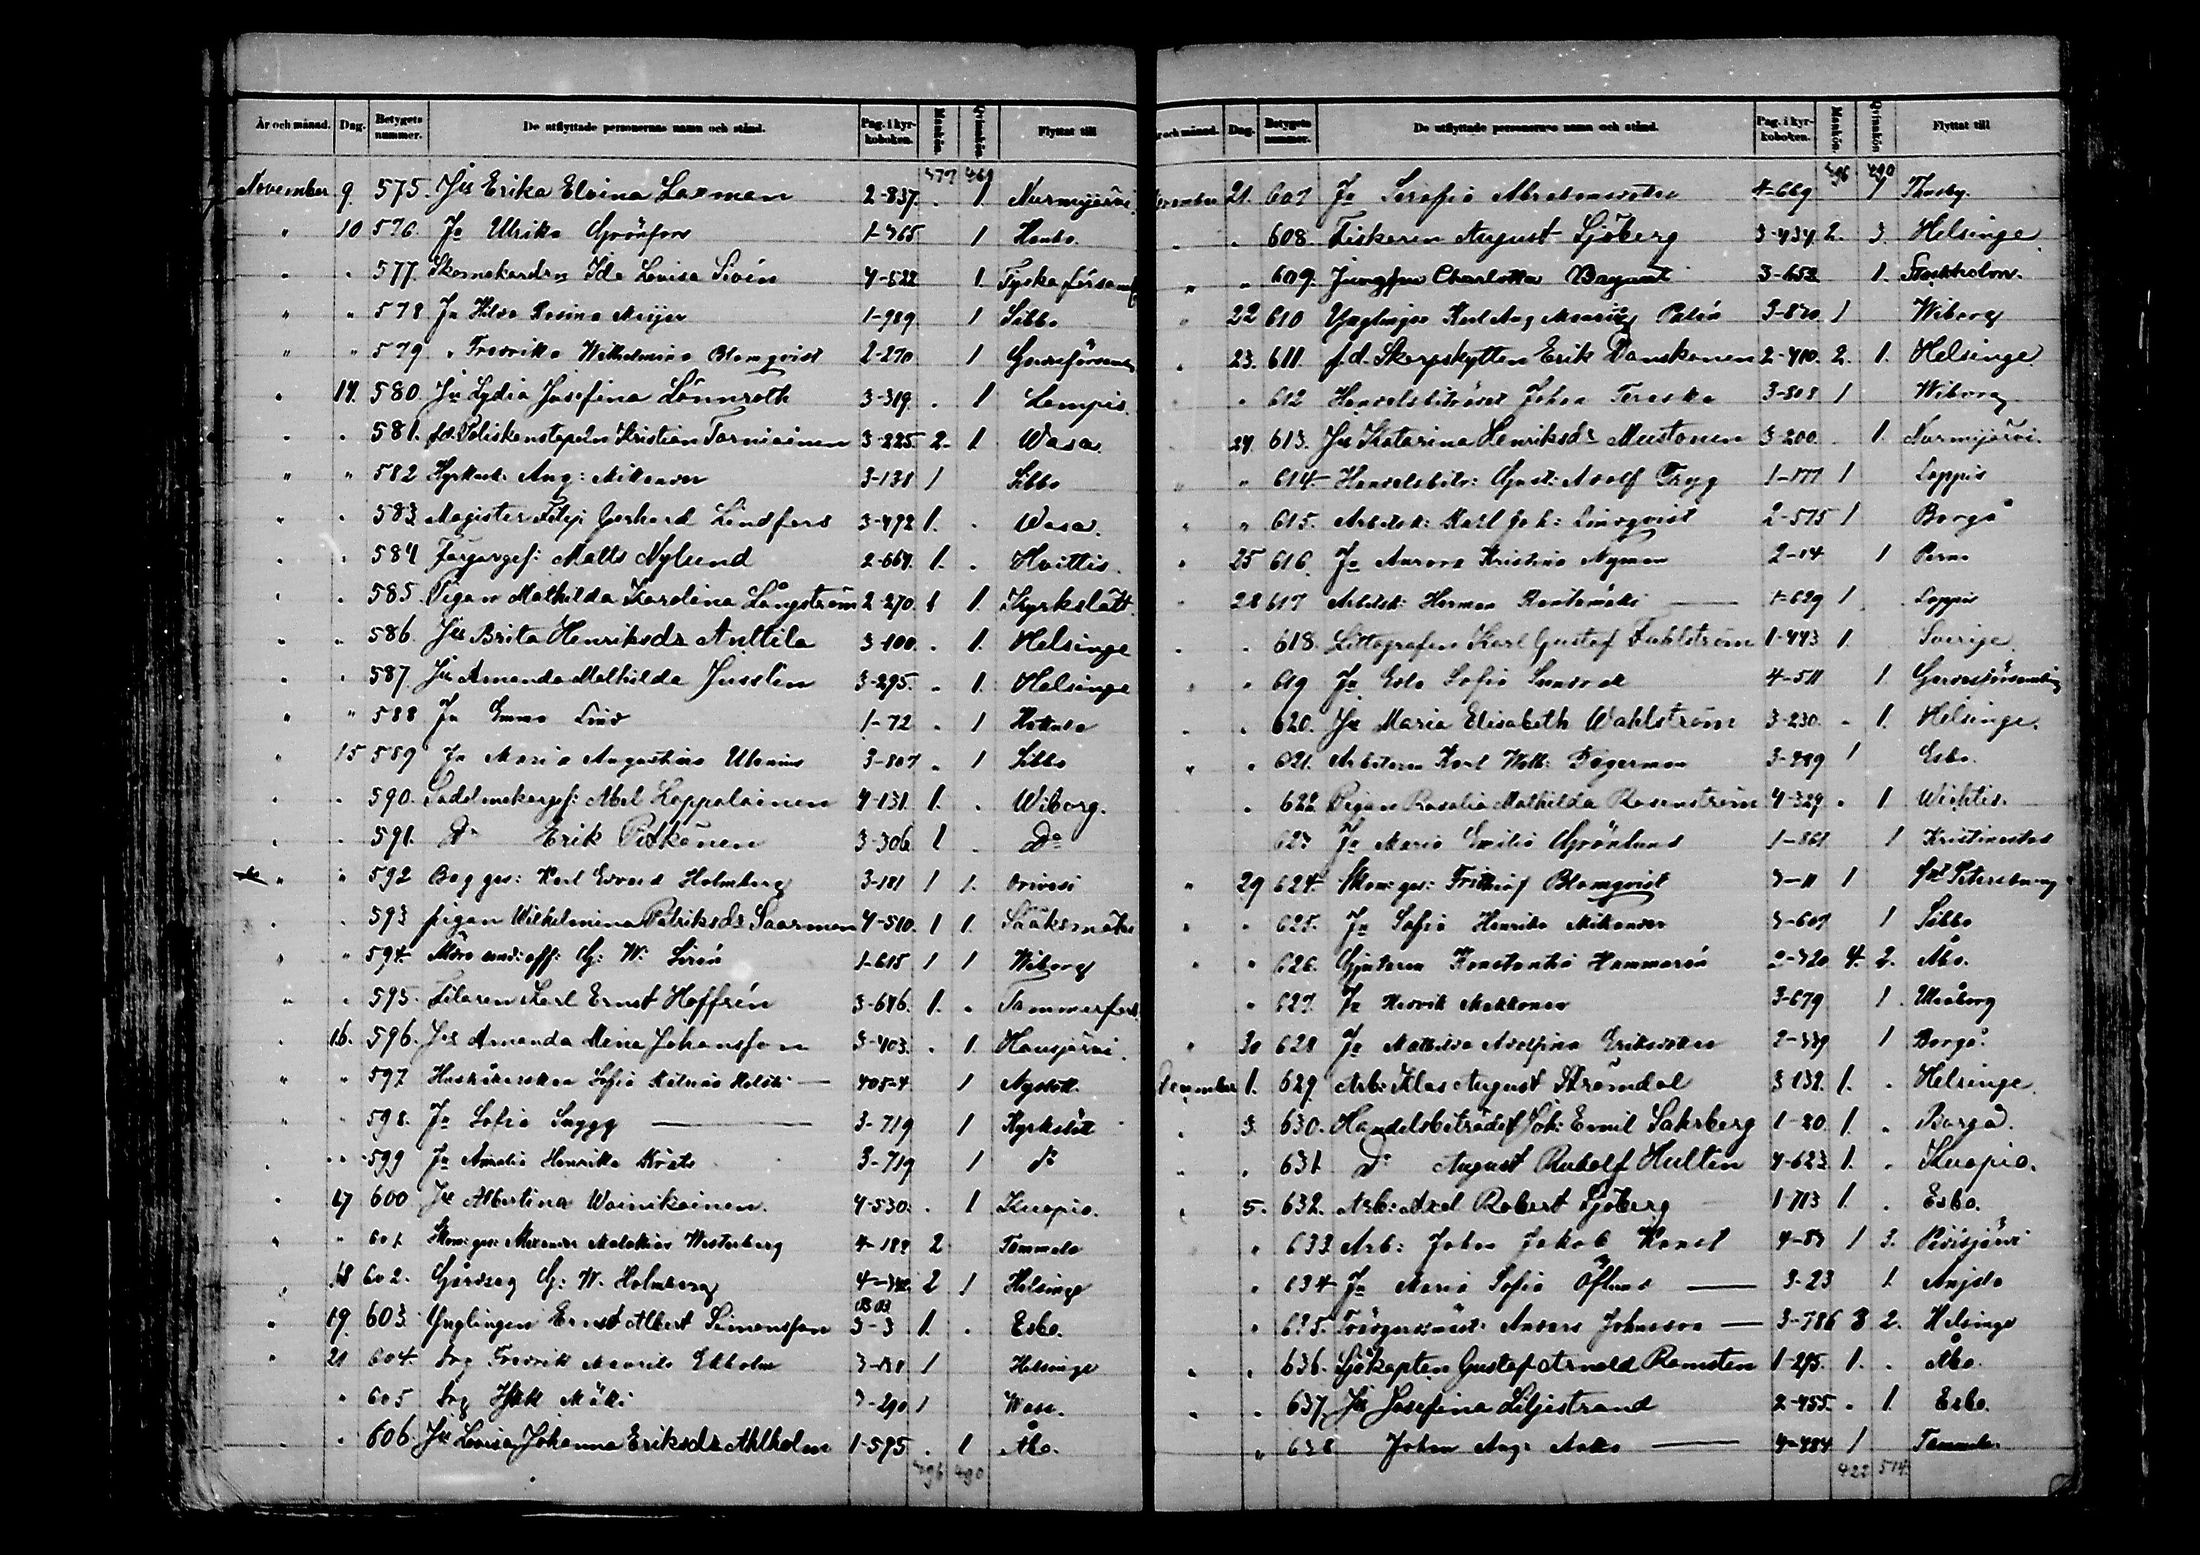 År och månad. Dag. Betygets nummer. De utflyttade personernas namn och stånd. Pag. i kyrkoboken. Mankön. Qvinnkön. Flyttat till
377 469
November 9. 575. Jgfr Erika Elvina Laxman 2-837. . 1 Nurmijärvi.
" 10 576. Ja Ulrika Grönfors 1-365 1
" . 577. Ida Lovisa Sivén 4-522 1. Tyska församl
" " 578 Ja Hilda Rosina Meijer 1-989 1 Sibbo
" " 579 " Fredrika Wilhelmina Blomqvist 2-270 1
" 14. 580. Ja Lydia Josefina Lönnroth 3-319. . 1 Lampis.
" . 581. f.d. Poliskonstapeln Kristian Torniainen 3-225. 2. 1 Wasa.
" " 582 Aug: Mikander 3-138 1 Sibbo
" . 583. Magister Filip Gerhard Lindfors 3-492 1. . Wasa.
. . 584 Färgargef: Matts Nylund 2-664. 1. . Hvittis.
. . 585. Pigan Mathilda Karolina Långström 2-270. 1 1. Kyrkslätt
" . 586. Jgfr Brita Henriksdr Anttila 3-100. . 1. Helsinge
" . 587. Jgfr Amanda Mathilda Jusslin 3-295. . 1. Helsinge
" " 588 Ja Emma Lind 1-72 . 1 Hattula
" 15 589 Ja Maria Augustina Ulenius 3-807 . 1 Sibbo
. . 590. Sadelmakargef: Abel Loppalainen 4-131. 1. . Wiborg.
. . 591. Do Erik Pitkänen 3-306 1 . Do
" " 592 Karl Edvard Holmberg 3-181 1 1. Orivesi
. . 593 pigan Wilhelmina Patriksdr Saarman 4-510. 1 1. Sääksmäki
" " 594. G: W: Sirén 1-615 1 1 Wiborg
" . 595. Filaren Karl Ernst Hoffrén 3-646. 1. . Tammerfors.
. 16. 596. Jgfr Amanda Mina Johansson 3-403. . 1. Hausjärvi.
" " 597 Hushållerskan Sofia 405-4. 1 Nystad.
" . 598. Ja Sofia Snygg 3-719 1 Kyrkslätt
. . 599 Ja Amalia Henrika 3-719 1 Do
" 17 600 Jgfr Albertina Wainikainen. 4-530. . 1 Kuopio.
" " 601. Skom:ges: Alexander Malakias Westerberg 4-182 2 Tammela
" 18 602. G: W: Holmberg 4-342. 2 1 Helsinge
" 19. 603. Ynglingen Ernst Albert Simonsson 3-3 1. . Esbo.
" 21 604. Fredrik Mauritz Ekholm 3-138 1 Helsinge
" 605 Mäki 3-290 1 Wasa.
. . 606. Jgfr Lovisa Johanna Eriksdr Ahlholm 1-595 . 1 Åbo.
396 490
År och månad. Dag. Betygets nummer. De utflyttade personernas namn och stånd. Pag. i kyrkoboken. Mankön. Qvinnkön Flyttat till
396 490
November 21. 607 Ja Serafia Abrahamsdotter 4-669 1 Thusby.
. . 608. Fiskaren August Sjöberg 3-434. 2. 3. Helsinge
" " 609. Jungfru Charlotta 3-653 1. Stockholm.
" 22 610 Ynglingen Karl Aug Mauritz Palén 3-820 1 Wiborg
. 23. 611. f.d. Skarpskytten Erik Danskanen 2-410. 2. 1. Helsinge
" . 612 Handelsbiträdet Johan Tereska 3-808 1 Wiborg
24. 613. Jgfr Katarina Henriksdr Mustonen 3-200. 1. Nurmijärvi.
" " 614. Handelsbitr: Gust: Adolf Tryg 1-177 1 Loppis
" " 615. Arbetsk: Karl Joh: Lindqvist 2-575 1 Borgå
. 25 616. Ja Aurora Kristina Nyman 2-14 1 Perno
" 28 617 Arbetsk: Herman Rantamäki 1-629 1 Loppis
. . 618. Littografen Karl Gustaf Fahlström 1-443 1. Sverige
" " 619 Ja Sofia Sundvall 4-511 1
. . 620. Jgfr Maria Elisabeth Wahlström 3-230. . 1. Helsinge.
" . 621. Arbetaren Karl Wilh: Fagerman 3-289 1 Esbo.
. 622 Pigan Rosalia Mathilda Rosenström 4-329 . 1 Wichtis.
623 Ja Maria Emilia Grönlund 1-861 1 Kristinestad
" 29 624. Skom:ges: Frithiof Blomqvist 3-11 1 St Petersburg
" " 625. Ja Sofia Henrika Mikander 3-607 1 Sibbo
" " 626. Gjutaren Konstantin Hammarén 2-320 4. 2. Åbo.
" 627. Ja Hedvik Makkonen 3-679 1. Uleåborg
" 30 628 Ja Mathilda Adolfina Eriksdotter 2-339 1 Borgå
December 1. 629 Arb: Klas August Strömdal 3-132. 1. . Helsinge.
. 3. 630. Handelsbiträdet Joh: Emil Sahrberg 1-20. 1. . Borgå.
" . 631. Do August Rudolf Hultin 4-623 1. . Kuopio.
. 5. 632. Arb: Axel Robert Sjöberg 1-713 1. . Esbo.
" 633 Arb: Johan Jakob 4-83 1 3. Pidisjärvi
" 634 Ja Maria Sofia Öflund 3-23 1. Anjala
" 635. Anders Johnsson 3-786 3 2. Helsinge
. . 636. Sjökapten Gustaf Arnold Ramsten 1-295. 1. . Åbo.
. . 637. Jgfr Josefina Liljestrand 2-455. . 1. Esbo.
" 638 Johan Aug: 4-484 1 Tammela
422 514.